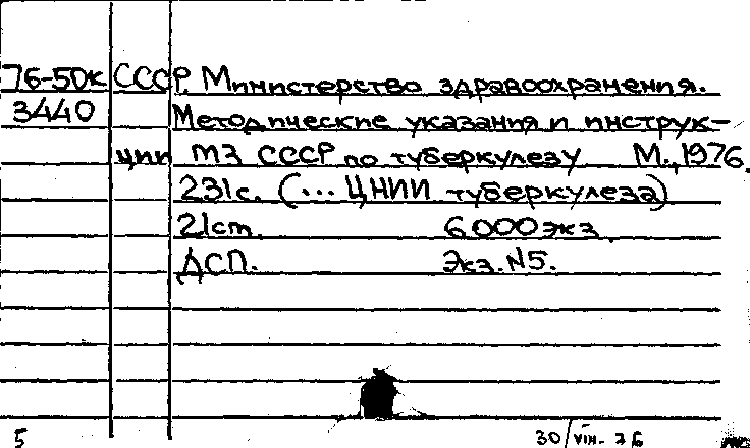 76-50к СССР. Министерство здравоохранения.
3440 Методические указания и инструк-
ции МЗ СССР по туберкулезу М., 1976.
231с. (... ЦНИИ туберкулеза)
21см. 6000экз.
ДСП. Экз. N5.
5 30/VIII- 76